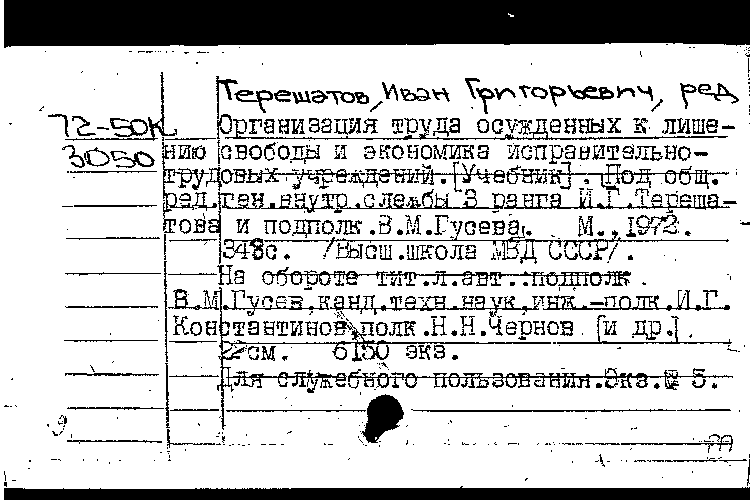 Терешатов, Иван Григорьевич, ред
72-50К Организация труда осужденных к лише-
3050 нию свободы и экономика исправительно-
трудовых учреждений. [Учебник]. Под общ.
ред. ген. внутр. службы 3 ранга И.Г. Тереша-
това и подполк. В.М. Гусева. М., 1972.
348с. /Высш. школа МВД СССР/.
На обороте тит. л. авт.: подполк.
В.М. Гусев, канд. техн. наук, инж.-полк. И.Г.
Константинов, полк. Н.Н. Чернов [и др.].
22см. 6150 экз.
Для служебного пользования. Экз. № 5.
9